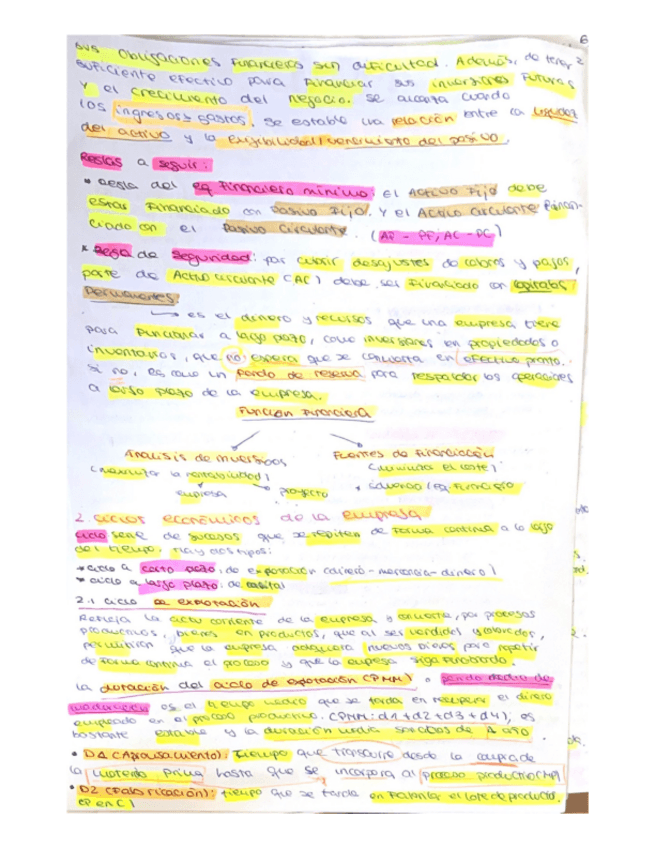 sus obligaciones financieras sin dificultad. Además, de tener
suficiente efectivo para financiar sus inversiones futuras
y el crecimiento del negocio. Se alcanza cuando
los ingresos ≥ gastos. Se establece una relación entre la liquidez
del activo y la exigibilidad/vencimiento del pasivo.
Reglas a seguir:
* Regla del eq. Financiero mínimo: El Activo Fijo debe
estar financiado con Pasivo Fijo. Y el Activo circulante finan-
ciado con el Pasivo circulante. (AF - PF; AC - PC)
* Regla de seguridad: para cubrir desajustes de cobros y pagos,
parte de Activo circulante (AC) debe ser financiado con capitales
permanentes.
→ es el dinero y recursos que una empresa tiene
para funcionar a largo plazo, como inversiones en propiedades o
inventarios, que no espera que se convierta en efectivo pronto.
Si no, es como un fondo de reserva para respaldar las operaciones
a largo plazo de la empresa.
Función Financiera
Análisis de inversiones Fuentes de Financiación
(maximizar la rentabilidad) (minimizar el coste)
empresa proyecto * Equilibrio Financiero
2. ciclos económicos de la empresa
ciclo serie de sucesos que se repiten de forma continua a lo largo
del tiempo. Hay dos tipos:
* ciclo a corto plazo: de explotación (dinero-mercancía-dinero)
* ciclo a largo plazo: de capital
2.1 ciclo de explotación
Refleja la actividad corriente de la empresa y convierte, por procesos
productivos, bienes en productos, que al ser vendidos y cobrados,
permitirán que la empresa adquiera nuevos bienes para repetir
de forma continua el proceso y que la empresa siga funcionando.
La duración del ciclo de explotación (PMM) o periodo medio de
maduración es el tiempo medio que se tarda en recuperar el dinero
empleado en el proceso productivo. (PMM: d1+d2+d3+d4), es
bastante estable y la duración media
• D1 (Aprovisionamiento): Tiempo que transcurre desde la compra de
la materia prima hasta que se incorpora al proceso productivo (MP)
• D2 (Fabricación): tiempo que se tarda en fabricar el lote de producto.